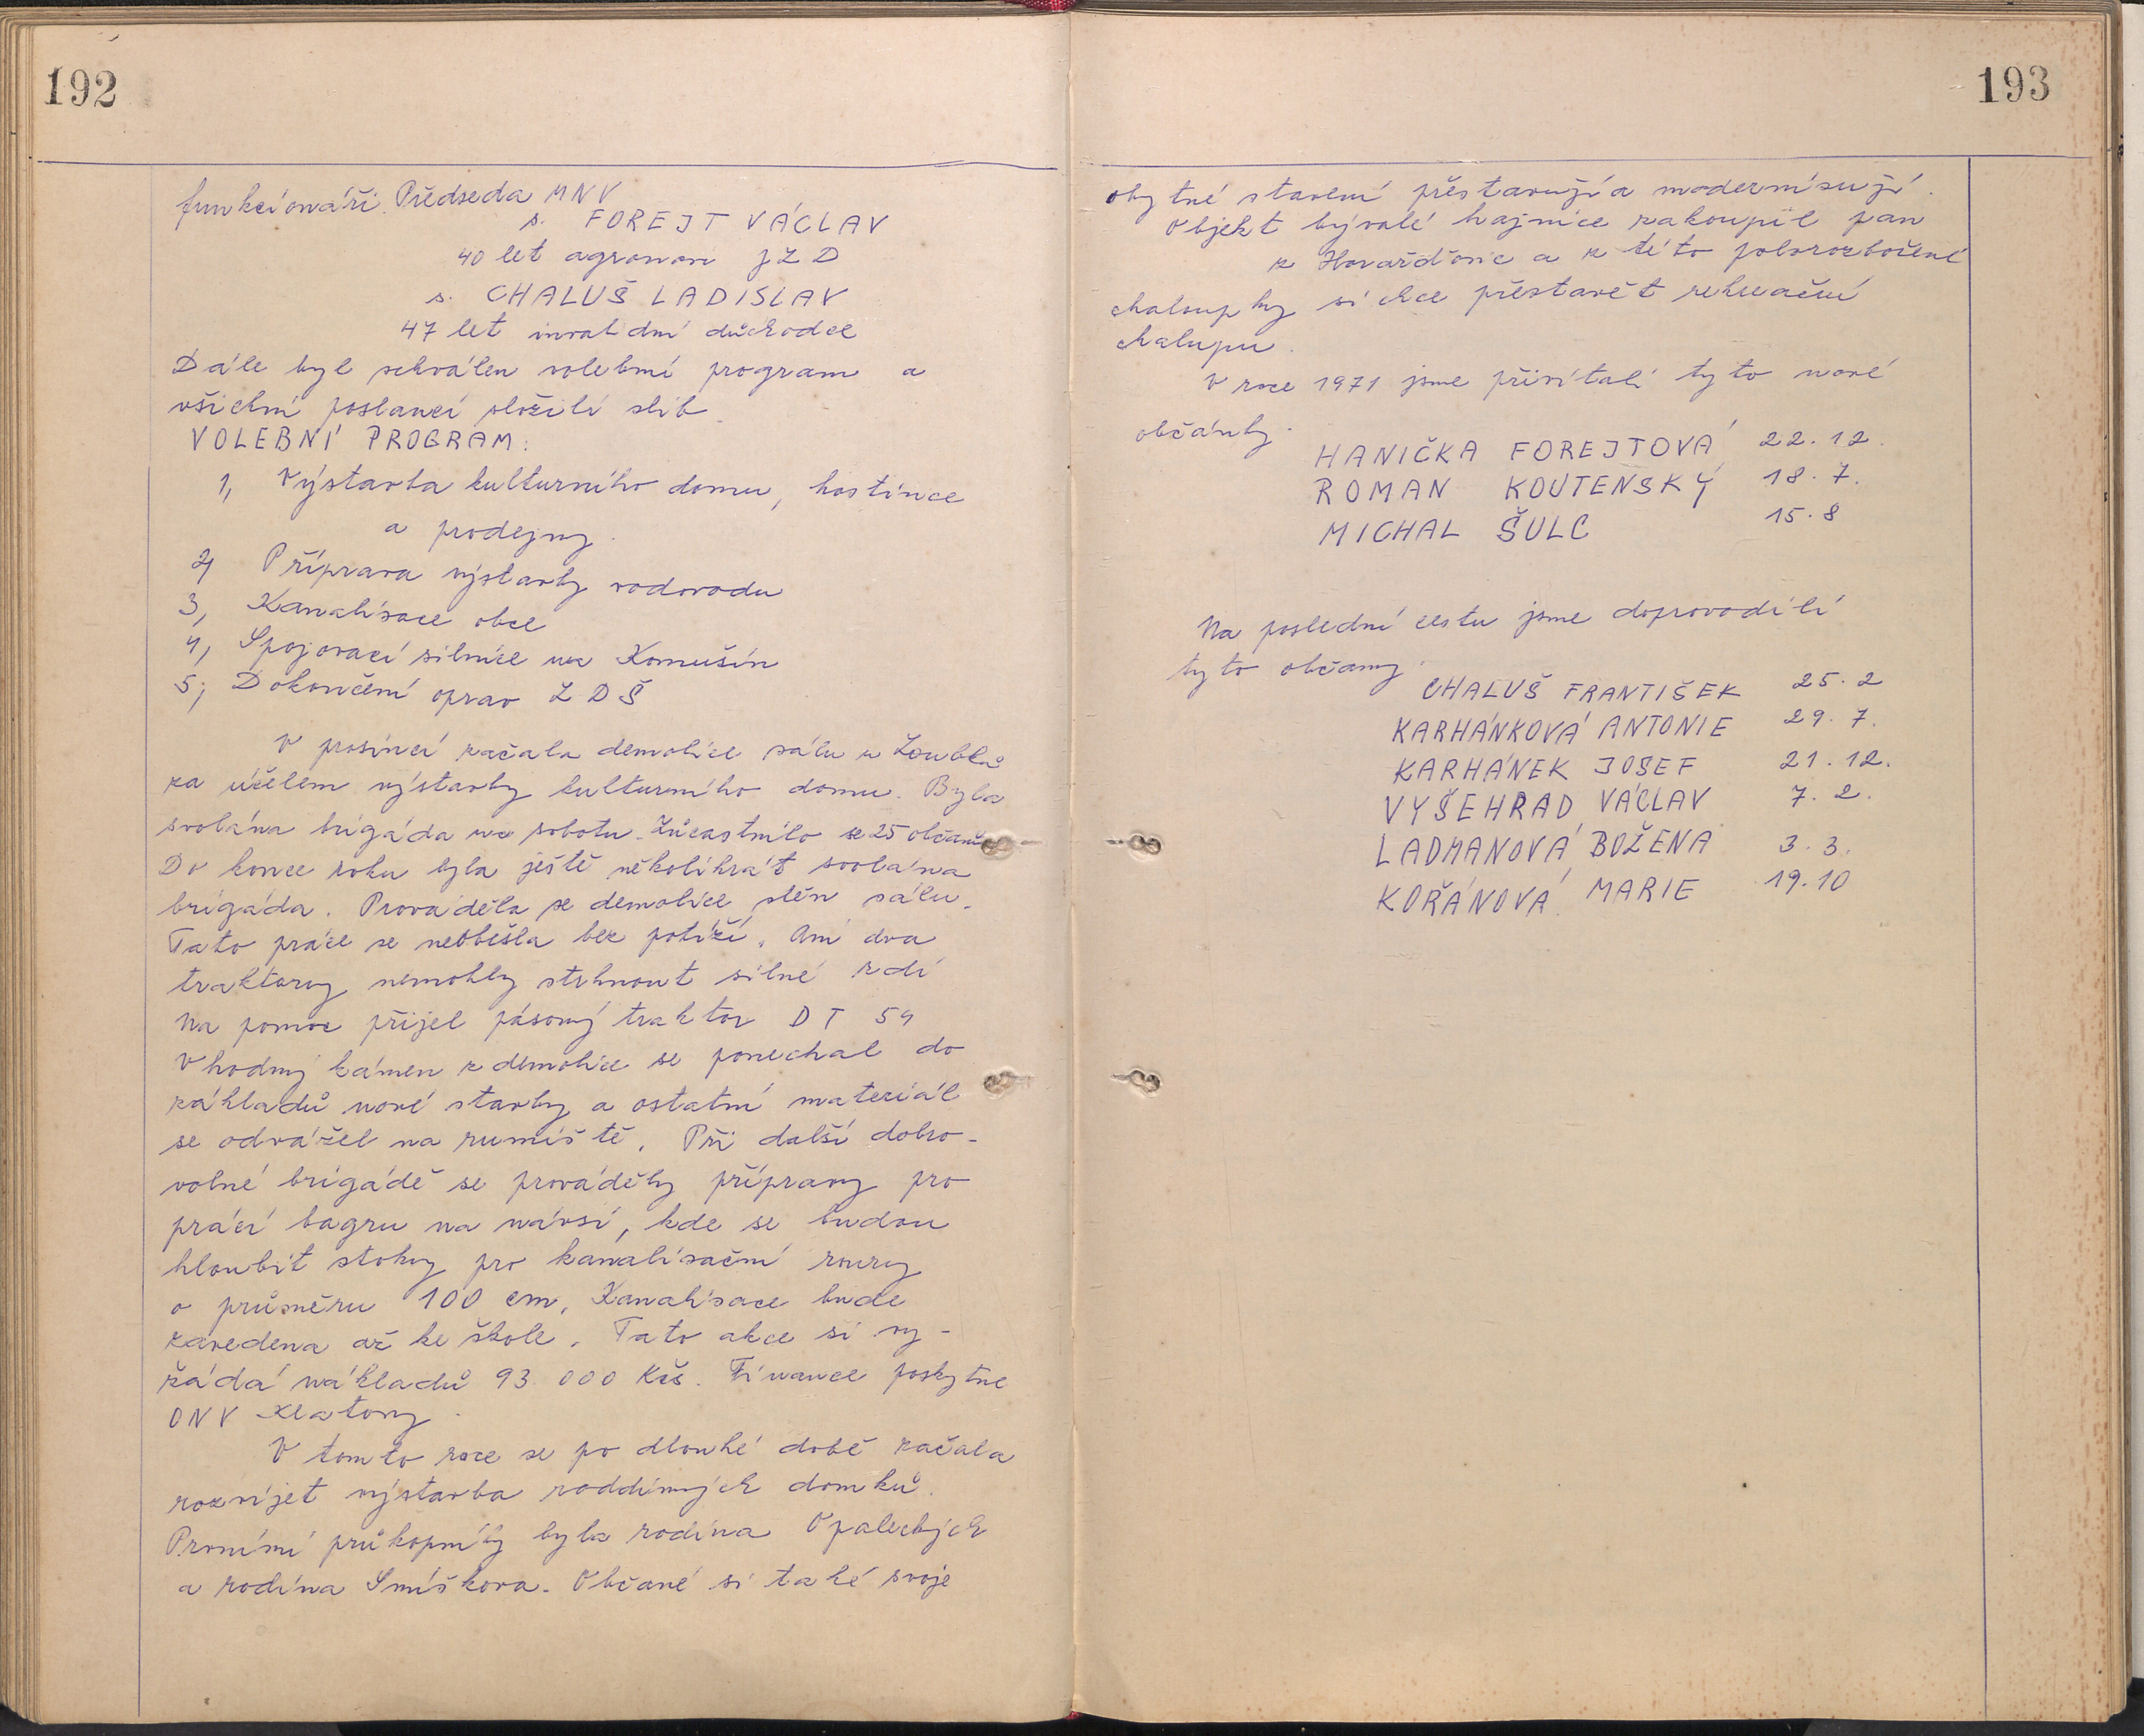 192
funkcionáři. Předseda MNV
s. FOREJT VÁCLAV
40 let agronom JZD
s. CHALUŠ LADISLAV
47 let invalidní důchodce
Dále byl schválen volební program a
všichni poslanci složili slib
VOLEBNÍ PROGRAM:
1, Výstavba kulturního domu, hostince
a prodejny.
2, Příprava výstavby vodovodu
3, Kanalisace obce
4, Spojovací silnice na Komušín
5, Dokončení oprav ZDŠ
V prosinci začala demolice sálu u Zoublů
za účelem výstavby kulturního domu. Byla
svolána brigáda na sobotu. Zúčastnilo se 25 občanů
Do konce roku byla ještě několikrát svolána
brigáda. Prováděla se demolice stěn sálu.
Tato práce se neobešla bez potíží. Ani dva
traktory nemohly strhnout silné zdi
Na pomoc přijel pásový traktor DT 54
Vhodný kámen z demolice se ponechal do
základů nové stavby a ostatní materiál
se odvážel na rumiště. Při další dobro-
volné brigádě se prováděly přípravy pro
práci bagru na návsi, kde se budou
hloubit stoky pro kanalisační roury
o průměru 100 cm. Kanalisace bude
zavedena až ke škole. Tato akce si vy-
žádá nákladů 93 000 Kčs. Finance poskytne
ONV Klatovy.
V tomto roce se po dlouhé době začala
rozvíjet výstavba roddiných domků.
Prvními průkopníky byla rodina Opaleckých
a rodina Smíškova. Občané si také svoje
193
obytné stavení přestavují a modernisují.
Objekt bývalé hajnice zakoupil pan
z Horažďovic a z této polorozbořené
chaloupky si chce přestavět rekreační
chalupu.
V roce 1971 jsme přivítali tyto nové
občánky.
HANIČKA FOREJTOVÁ 22. 12.
ROMAN KOUTENSKÝ 18. 7.
MICHAL ŠULC 15. 8
Na poslední cestu jsme doprovodili
tyto občany.
CHALUŠ FRANTIŠEK 25. 2
KARHÁNKOVÁ ANTONIE 29. 7.
KARHÁNEK JOSEF 21. 12.
VYŠEHRAD VÁCLAV 7. 2.
LADMANOVÁ BOŽENA 3. 3.
KOŘÁNOVÁ MARIE 19. 10